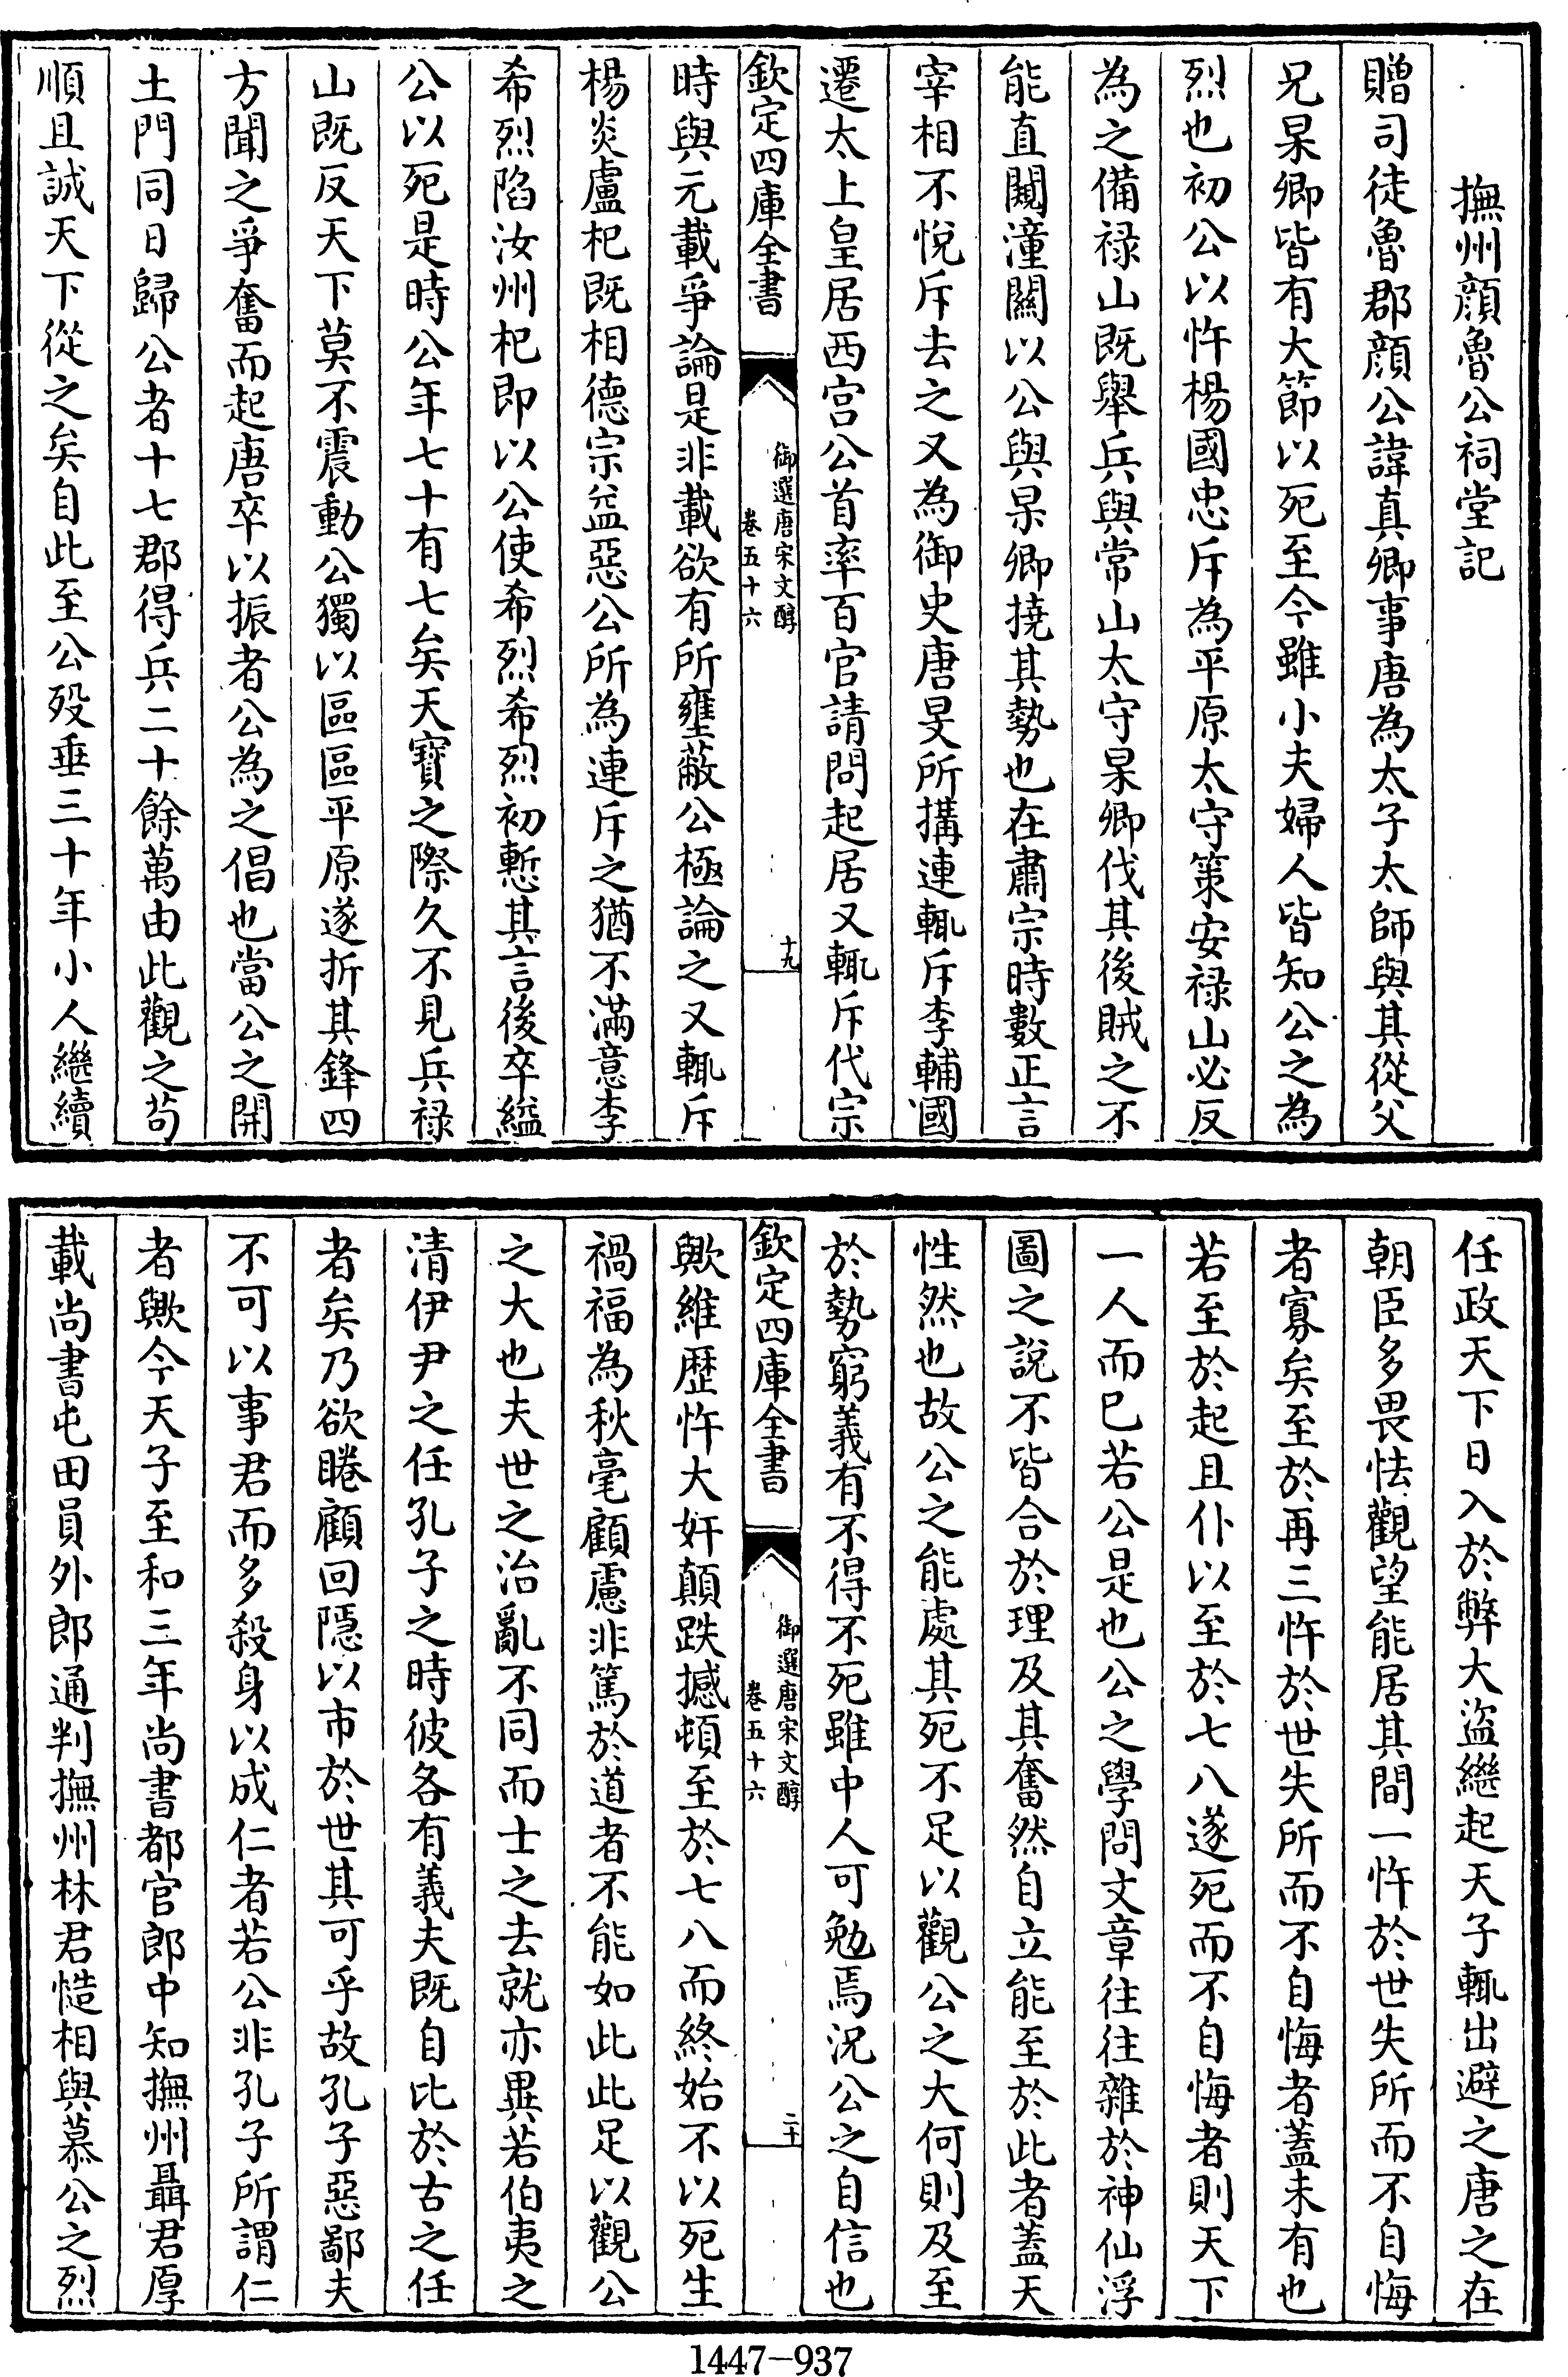 撫州顔魯公祠堂記
贈司徒魯郡顔公諱真卿事唐為太子太師與其從父
兄杲卿皆有大節以死至今雖小夫婦人皆知公之為
烈也初公以忤楊國忠斥為平原太守策安禄山必反
為之備禄山既舉兵與常山太守杲卿伐其後賊之不
能直闚潼關以公與杲卿撓其勢也在肅宗時數正言
宰相不悅斥去之又為御史唐旻所搆連輒斥李輔國
遷太上皇居西宫公首率百官請問起居又輒斥代宗
欽定四庫全書
御選唐宋文醇
卷五十六
十九
時與元載爭論是非載欲有所壅蔽公極論之又輒斥
楊炎盧杞既相德宗益惡公所為連斥之猶不滿意李
希烈陷汝州杞即以公使希烈希烈初慙其言後卒縊
公以死是時公年七十有七矣天寶之際久不見兵禄
山既反天下莫不震動公獨以區區平原遂折其鋒四
方聞之爭奮而起唐卒以振者公為之倡也當公之開
土門同日歸公者十七郡得兵二十餘萬由此觀之苟
順且誠天下從之矣自此至公殁垂三十年小人繼續
任政天下日入於弊大盜繼起天子輒出避之唐之在
朝臣多畏怯觀望能居其間一忤於世失所而不自悔
者寡矣至於再三忤於世失所而不自悔者蓋未有也
若至於起且仆以至於七八遂死而不自悔者則天下
一人而已若公是也公之學問文章往往雜於神仙浮
圖之說不皆合於理及其奮然自立能至於此者蓋天
性然也故公之能處其死不足以觀公之大何則及至
於勢窮義有不得不死雖中人可勉焉況公之自信也
欽定四庫全書
御選唐宋文醇
卷五十六
二十
歟維歷忤大奸顛跌撼頓至於七八而終始不以死生
禍福為秋毫顧慮非篤於道者不能如此此足以觀公
之大也夫世之治亂不同而士之去就亦異若伯夷之
清伊尹之任孔子之時彼各有義夫既自比於古之任
者矣乃欲睠顧回隱以市於世其可乎故孔子惡鄙夫
不可以事君而多殺身以成仁者若公非孔子所謂仁
者歟今天子至和三年尚書都官郎中知撫州聶君厚
載尚書屯田員外郎通判撫州林君慥相與慕公之烈
1447-937